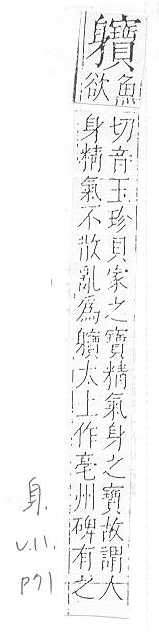 魚
欲
切音玉珍貝家之寶精氣身之寶故謂大
身精氣不散亂爲太上作亳州碑有之
身.
V.11.
P71